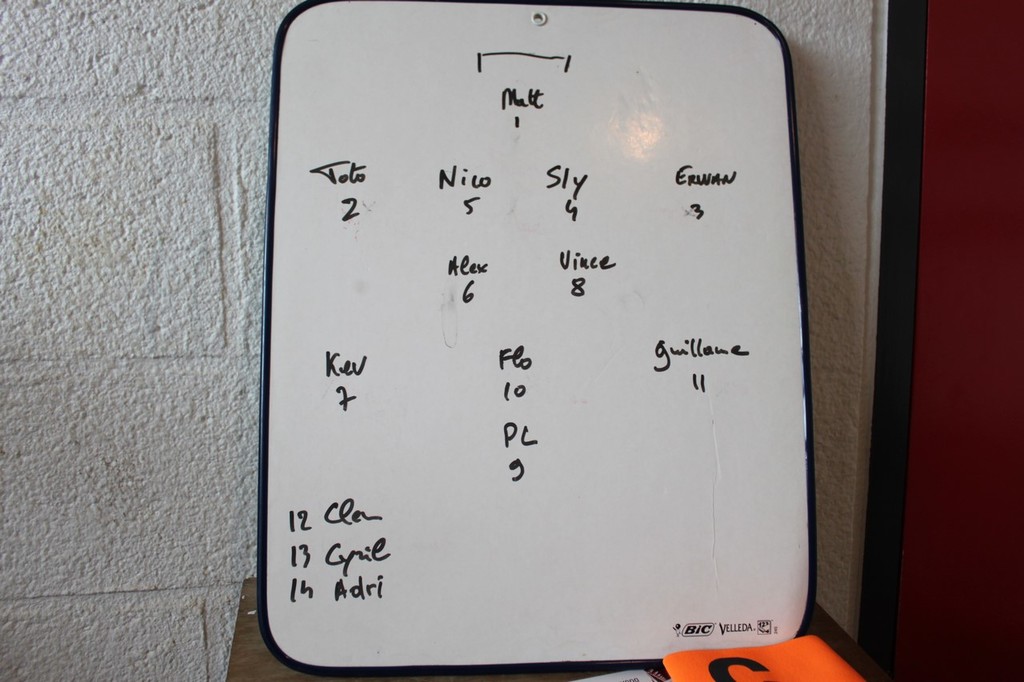 Matt
1
Toto Nico Sly ERWAN
2 5 4 3
Alex Vince
6 8
Kev Flo guillaume
7 10 11
PL
9
12 Clem
13 Cyril
14 Adri
BIC VELLEDA
C